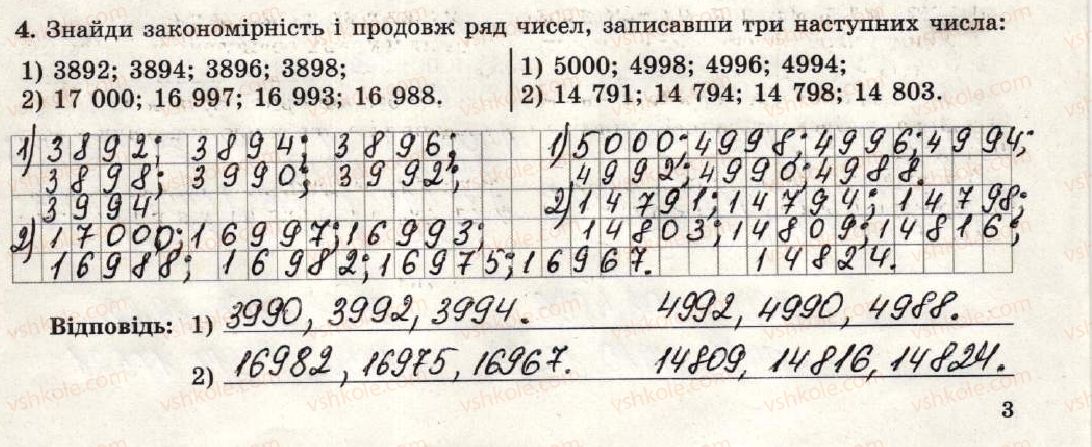 4. Знайди закономірність і продовж ряд чисел, записавши три наступних числа:
1) 3892; 3894; 3896; 3898;
2) 17 000; 16 997; 16 993; 16 988.
1) 5000; 4998; 4996; 4994;
2) 14 791; 14 794; 14 798; 14 803.
1) 3892; 3894; 3896;
3898; 3990; 3992;
3994.
2) 17000; 16997; 16993;
16988; 16982; 16975; 16967.
1) 5000; 4998; 4996; 4994;
4992; 4990; 4988.
2) 14791; 14794; 14798;
14803; 14809; 14816;
14824.
Відповідь: 1) 3990, 3992, 3994. 4992, 4990, 4988.
2) 16982, 16975, 16967. 14809, 14816, 14824.
3